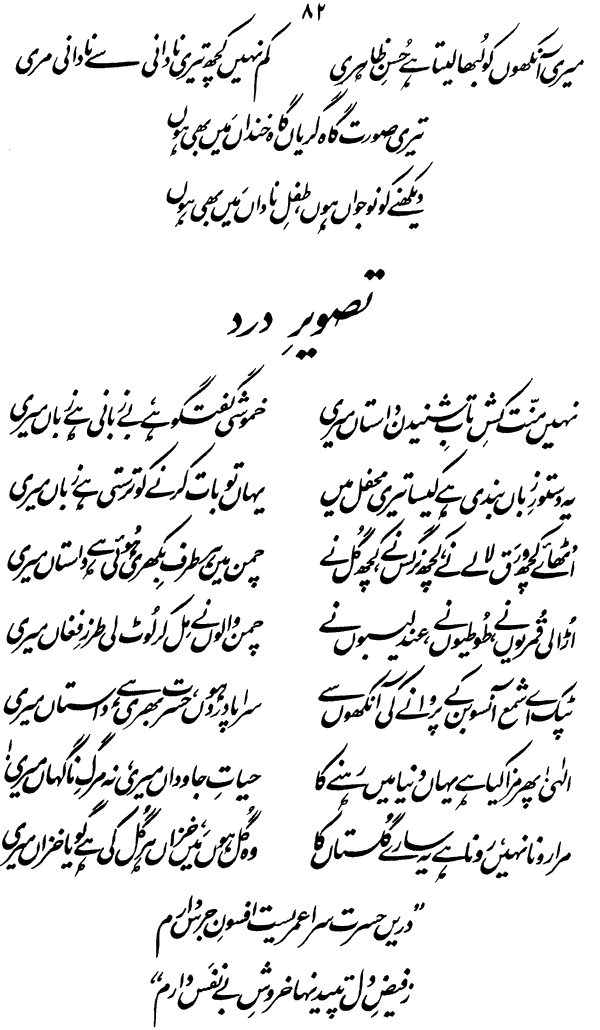 ۸۲
میری آنکھوں کو لُبھا لیتا ہے حُسنِ ظاہری کم نہیں کچھ تیری نادانی سے نادانی مری
تیری صورت گاہ گریاں گاہ خنداں مَیں بھی ہُوں
دیکھنے کو نوجواں ہُوں، طفلِ ناداں مَیں بھی ہُوں
تصویرِ درد
نہیں منّت کشِ تابِ شنیدن داستاں میری خموشی گفتگو ہے، بے زبانی ہے زباں میری
یہ دستورِ زباں بندی ہے کیسا تیری محفل میں یہاں تو بات کرنے کو ترستی ہے زباں میری
اُٹھائے کچھ ورَق لالے نے، کچھ نرگس نے، کچھ گُل نے چمن میں ہر طرف بِکھری ہُوئی ہے داستاں میری
اُڑالی قُمریوں نے، طُوطیوں نے، عندلیبوں نے چمن والوں نے مِل کر لُوٹ لی طرزِ فغاں میری
ٹپک اے شمع آنسو بن کے پروانے کی آنکھوں سے سراپا درد ہوں، حسرت بھری ہے داستاں میری
الٰہی! پھر مزا کیا ہے یہاں دنیا میں رہنے کا حیاتِ جاوداں میری، نہ مرگِ ناگہاں میری!
مرا رونا نہیں، رونا ہے یہ سارے گُلستاں کا وہ گُل ہوں مَیں، خزاں ہر گُل کی ہے گویا خزاں میری
”دریں حسرت سرا عمریست افسونِ جرس دارم
ز فیضِ دل تپیدنہا خروشِ بے نفَس دارم“